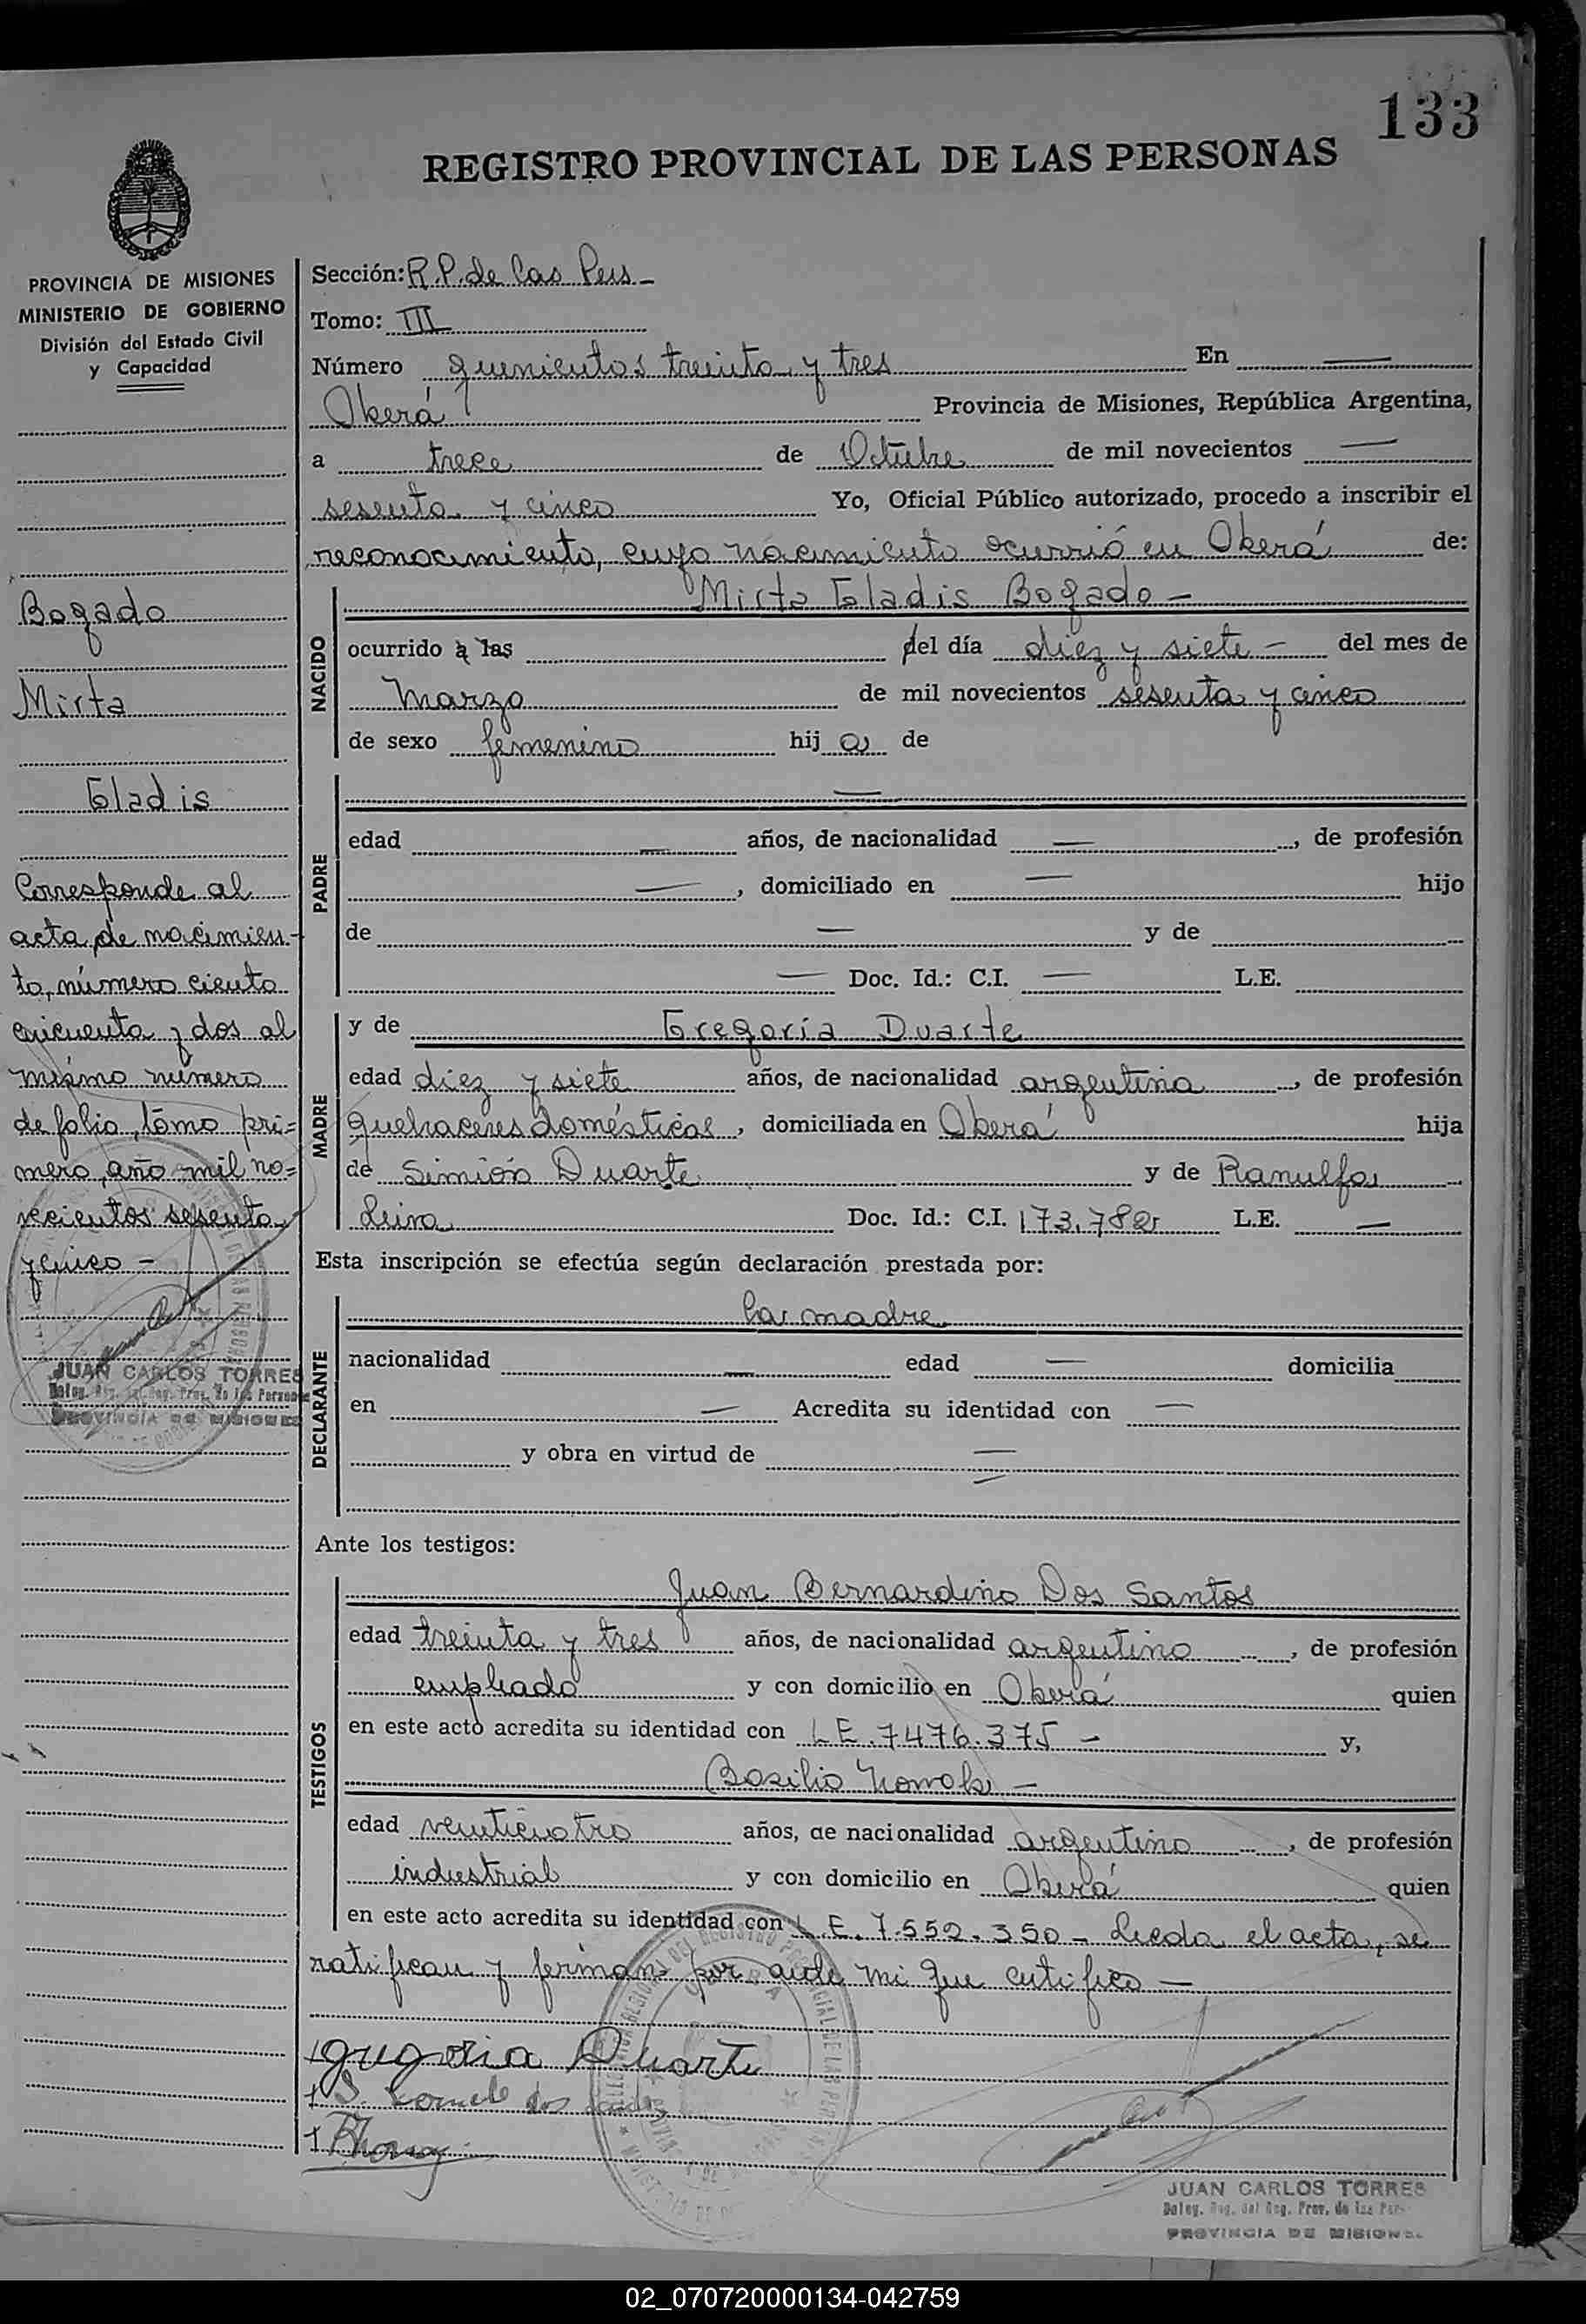 133
REGISTRO PROVINCIAL DE LAS PERSONAS
PROVINCIA DE MISIONES
MINISTERIO DE GOBIERNO
División del Estado Civil
y Capacidad
Bogado
Mirta
Gladis
Corresponde al
acta de nacimien-
to, número ciento
cincuenta y dos al
mismo número
de folio, tomo pri=
mero, año mil no=
vecientos sesenta
y cinco -
JUAN CARLOS TORRES
PROVINCIA DE MISIONES
Sección: R.P. de las Pers -
Tomo: III
Número quinientos treinta y tres En —
Oberá Provincia de Misiones, República Argentina,
a trece de Octubre de mil novecientos —
sesenta y cinco Yo, Oficial Público autorizado, procedo a inscribir el
reconocimiento, cuyo nacimiento ocurrió en Oberá de:
NACIDO
Mirta Gladis Bogado -
ocurrido a las del día diez y siete - del mes de
marzo de mil novecientos sesenta y cinco
de sexo femenino hij a de
PADRE
—
edad — años, de nacionalidad —, de profesión
—, domiciliado en — hijo
de — y de
— Doc. Id.: C.I. — L.E.
MADRE
y de Gregoria Duarte
edad diez y siete años, de nacionalidad argentina, de profesión
quehaceres domésticos, domiciliada en Oberá hija
de Simión Duarte y de Ranulfa
Leiva Doc. Id.: C.I. 173.782 L.E. —
Esta inscripción se efectúa según declaración prestada por:
DECLARANTE
la madre
nacionalidad — edad — domicilia
en — Acredita su identidad con —
y obra en virtud de —
—
Ante los testigos:
TESTIGOS
Juan Bernardino Dos Santos
edad treinta y tres años, de nacionalidad argentino, de profesión
empleado y con domicilio en Oberá quien
en este acto acredita su identidad con L.E. 7476.375 - y,
Basilio -
edad veinticuatro años, de nacionalidad argentino, de profesión
industrial y con domicilio en Oberá quien
en este acto acredita su identidad con L.E. 7.552.350 - Leeda el acta, se
ratifican y firman por ante mi que certifico -
gregoria Duarte
JUAN CARLOS TORRES
Deleg. Reg. del Reg. Prov. de las Per
PROVINCIA DE MISIONES
02_070720000134-042759